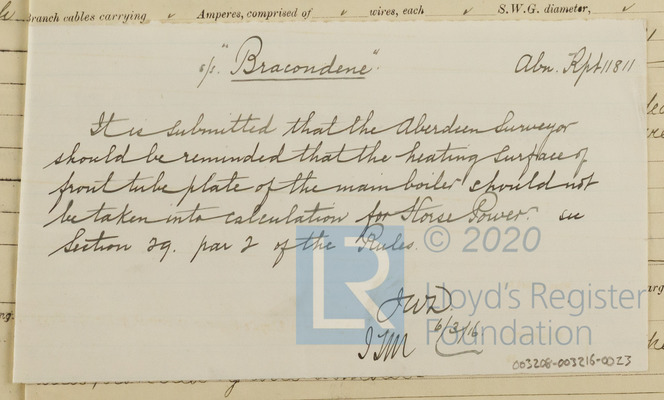 Branch cables carrying ✓ Amperes, comprised of ✓ wires, each ✓ S.W.G. diameter, ✓
s/s. "Bracondene". Abn. Rpt 11811
It is submitted that the Aberdeen Surveyor
should be reminded that the heating surface of
front tube plate of the main boiler should not
be taken into calculation for Horse Power. see
Section 29. par 2 of the Rules.
LR © 2020
Lloyd's Register
Foundation
JWD.
6/3/16
003208-003216-0023